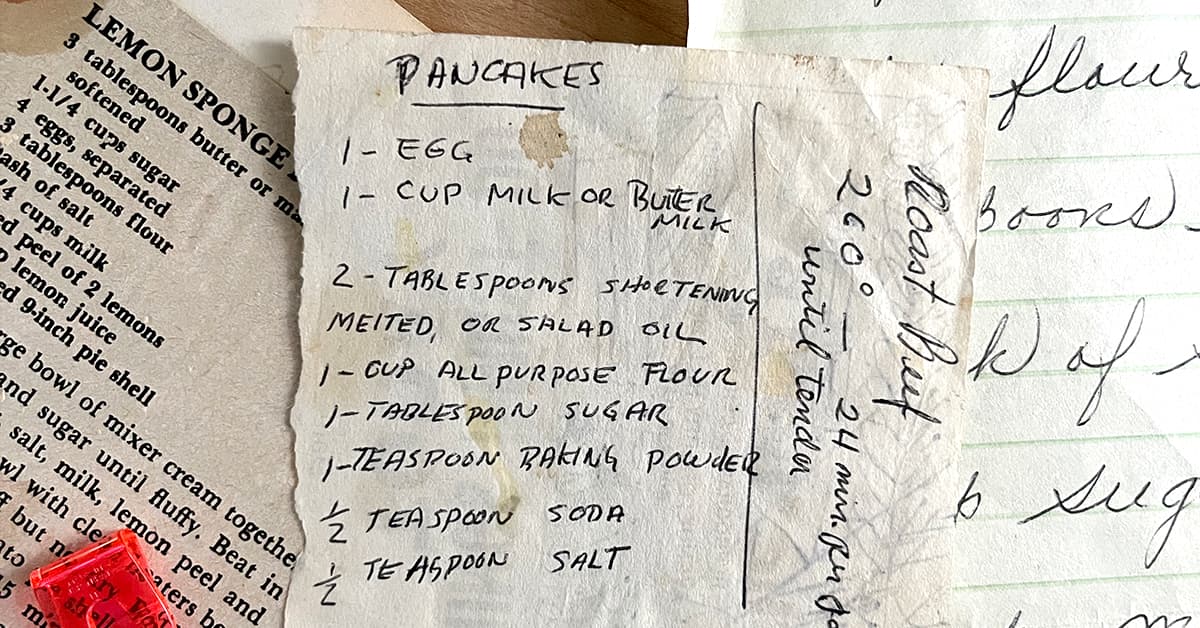 LEMON SPONGE
3 tablespoons butter or
softened
1-1/4 cups sugar
4 eggs, separated
3 tablespoons flour
of salt
cups milk
peel of 2 lemons
lemon juice
9-inch pie shell
bowl of mixer cream
and sugar until fluffy. Beat in
salt, milk, lemon peel and
with
but
PANCAKES
1- EGG
1- CUP MILK OR BUTTER
MILK
2 - TABLESPOONS SHORTENING
MELTED, OR SALAD OIL
1- CUP ALL PURPOSE FLOUR
1- TABLESPOON SUGAR
1- TEASPOON BAKING POWDER
1/2 TEASPOON SODA
1/2 TEASPOON SALT
Roast Beef
260° — 24 min.
until tender
flour
of